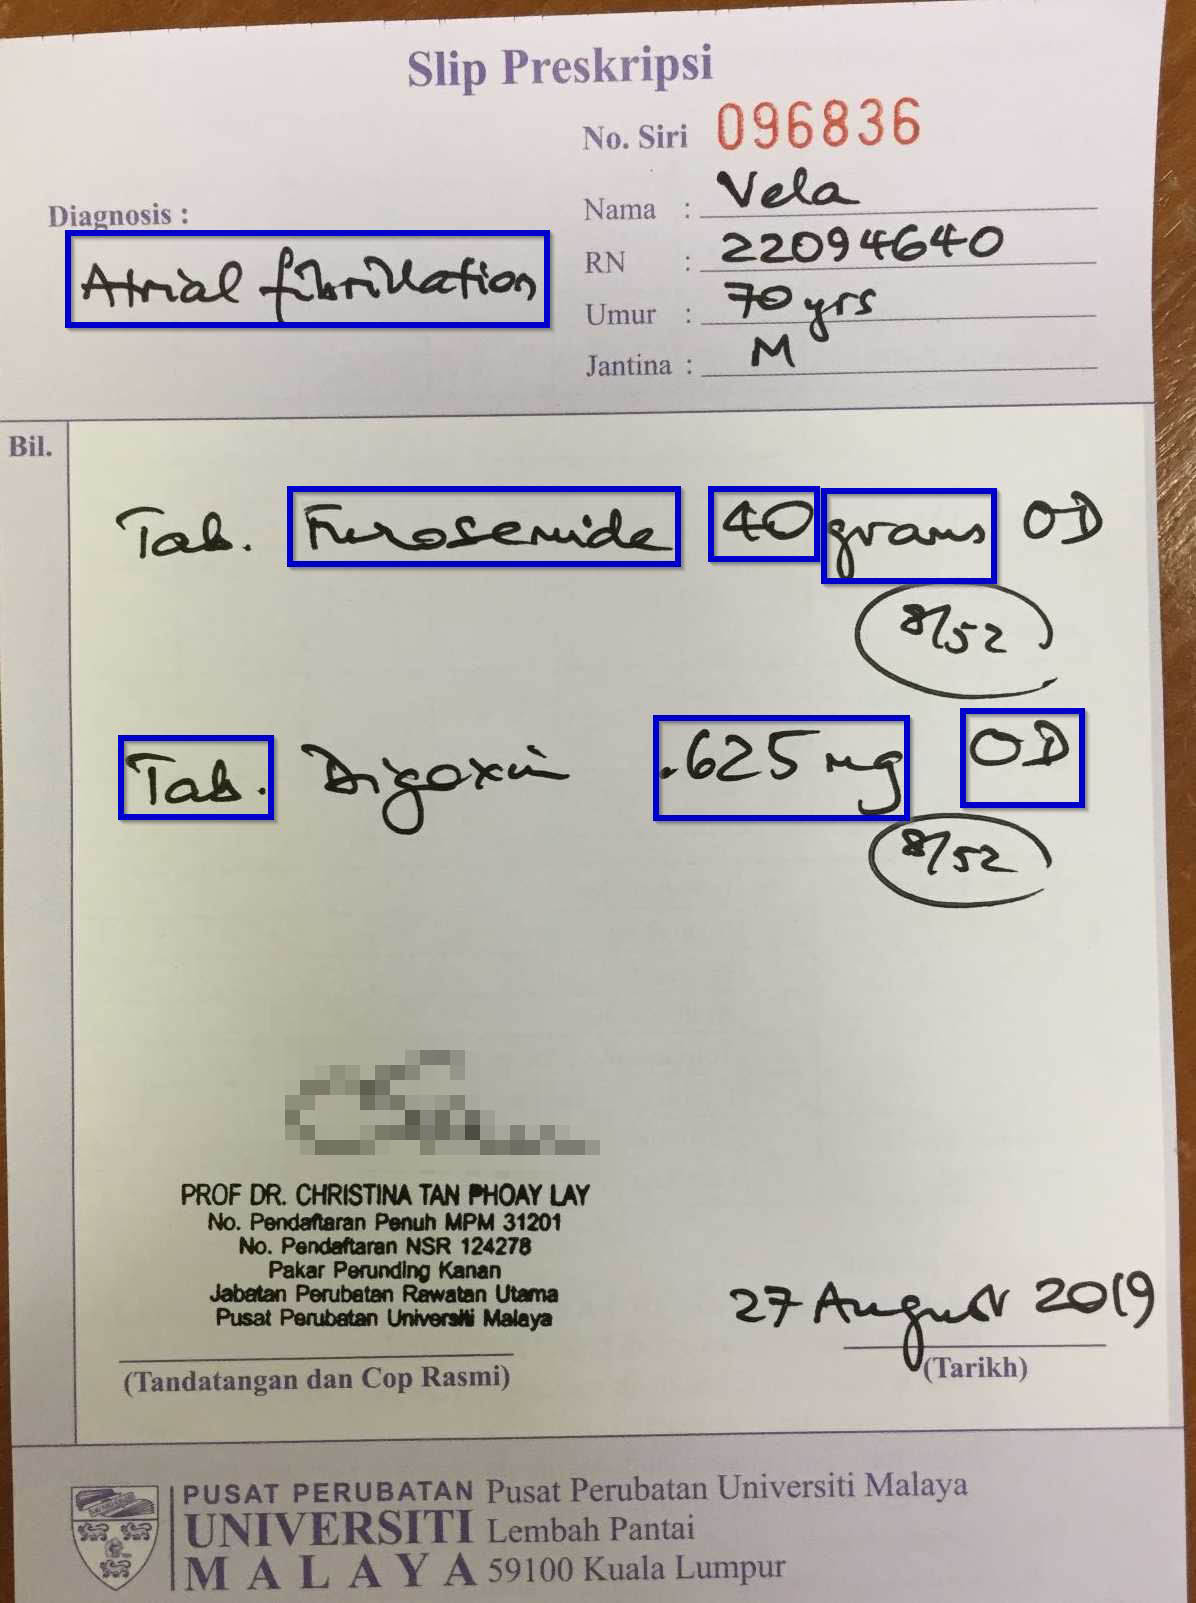 Slip Preskripsi
No. Siri 096836
Diagnosis :
Atrial fibrillation
Nama : Vela
RN : 22094640
Umur : 70 yrs
Jantina : M
Bil.
Tab. Furosemide 40 grams OD
8/52
Tab. Digoxin .625 mg OD
8/52
PROF DR. CHRISTINA TAN PHOAY LAY
No. Pendaftaran Penuh MPM 31201
No. Pendaftaran NSR 124278
Pakar Perunding Kanan
Jabatan Perubatan Rawatan Utama
Pusat Perubatan Universiti Malaya
27 August 2019
(Tandatangan dan Cop Rasmi)
(Tarikh)
PUSAT PERUBATAN
UNIVERSITI
MALAYA
Pusat Perubatan Universiti Malaya
Lembah Pantai
59100 Kuala Lumpur